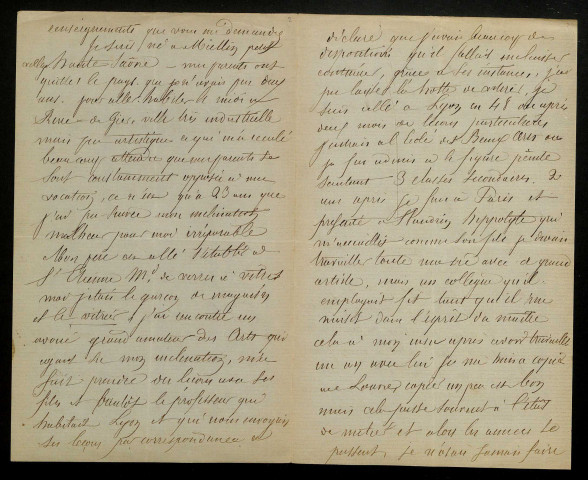 renseignements que vous me demandez
je suis né a Miellin petit
village haute Saône — mes parents ont
quittés le pays que je n'avais pas deux
ans. pour aller habiter le midi
Rive-de-Giers ville très industrielle
mais peu artistique ce qui m'a reculé
beaucoup attendu que mes parents se
sont constamment opposés a ma
vocation, ce n'est qu'a 23 ans que
j'ai pu suivre mon inclination
malheur pour moi irréparable
Mon père est allé s'établir a
St Etienne Md de verres a vitres
moi j'étais le garçon de magasin
et le vitrier j'ai rencontré un
avoué grand amateur des Arts qui
voyant de mon inclination, me
fait prendre des leçons avec ses
fils et bientôt le professeur qui
habitait Lyon et qui nous envoyait
ses leçons par correspondance a
déclaré que j'avais beaucoup de
dispositions qu'il fallait m'en
continuer, grâce a ses instances, j'ai
pu laisser la hotte de vitrier, je
suis allé a Lyon en 48 ou après
deux mois de leçons particulières
j'entrais a l'école des Beaux Arts ou
je fus admis a la figure peinte
sautant 3 classes secondaires. 2
ans après je fus a Paris et
présenté a Flandrin Hyppolyte qui
m'accueillit comme son fils je devais
travailler toute ma vie avec ce grand
artiste, mais un collègue qu'il
employait fit tant qu'il me
nuisit dans l'esprit du maître
cela a mon insu après avoir travaillé
un an avec lui je me mis a copier
au Louvre, copier un peu est bon
mais cela passe souvent a l'état
de métier et alors les années se
passent, je n'osais jamais faire